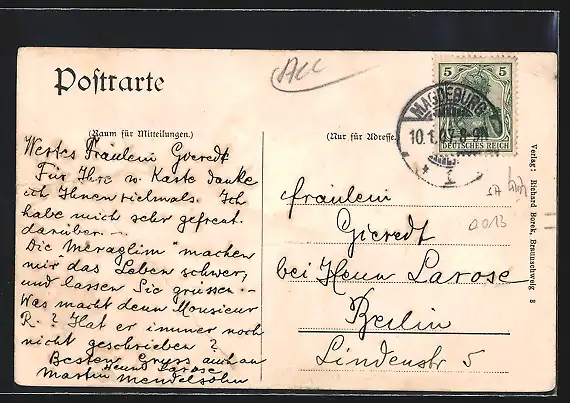 Postkarte
(Raum für Mitteilungen.)
Wertes Fräulein Gieredt
Für Ihre w. Karte danke
ich Ihnen vielmals. Ich
habe mich sehr gefreut.
darüber. —
Die "Meraglim" machen
mir das Leben schwer,
und lassen Sie grüssen. —
Was macht denn Monsieur
R.? Hat er immer noch
nicht geschrieben?
Besten Gruss auch an
Herrn Larose
Martin Mendelsohn
ALL
(Nur für Adresse.)
5 5
DEUTSCHES REICH
MAGDEBURG
10.1.07. 8-9N
1
Fräulein
Gieredt
bei Herrn Larose
Berlin
Lindenstr 5
Verlag: Richard Borek, Braunschweig 8